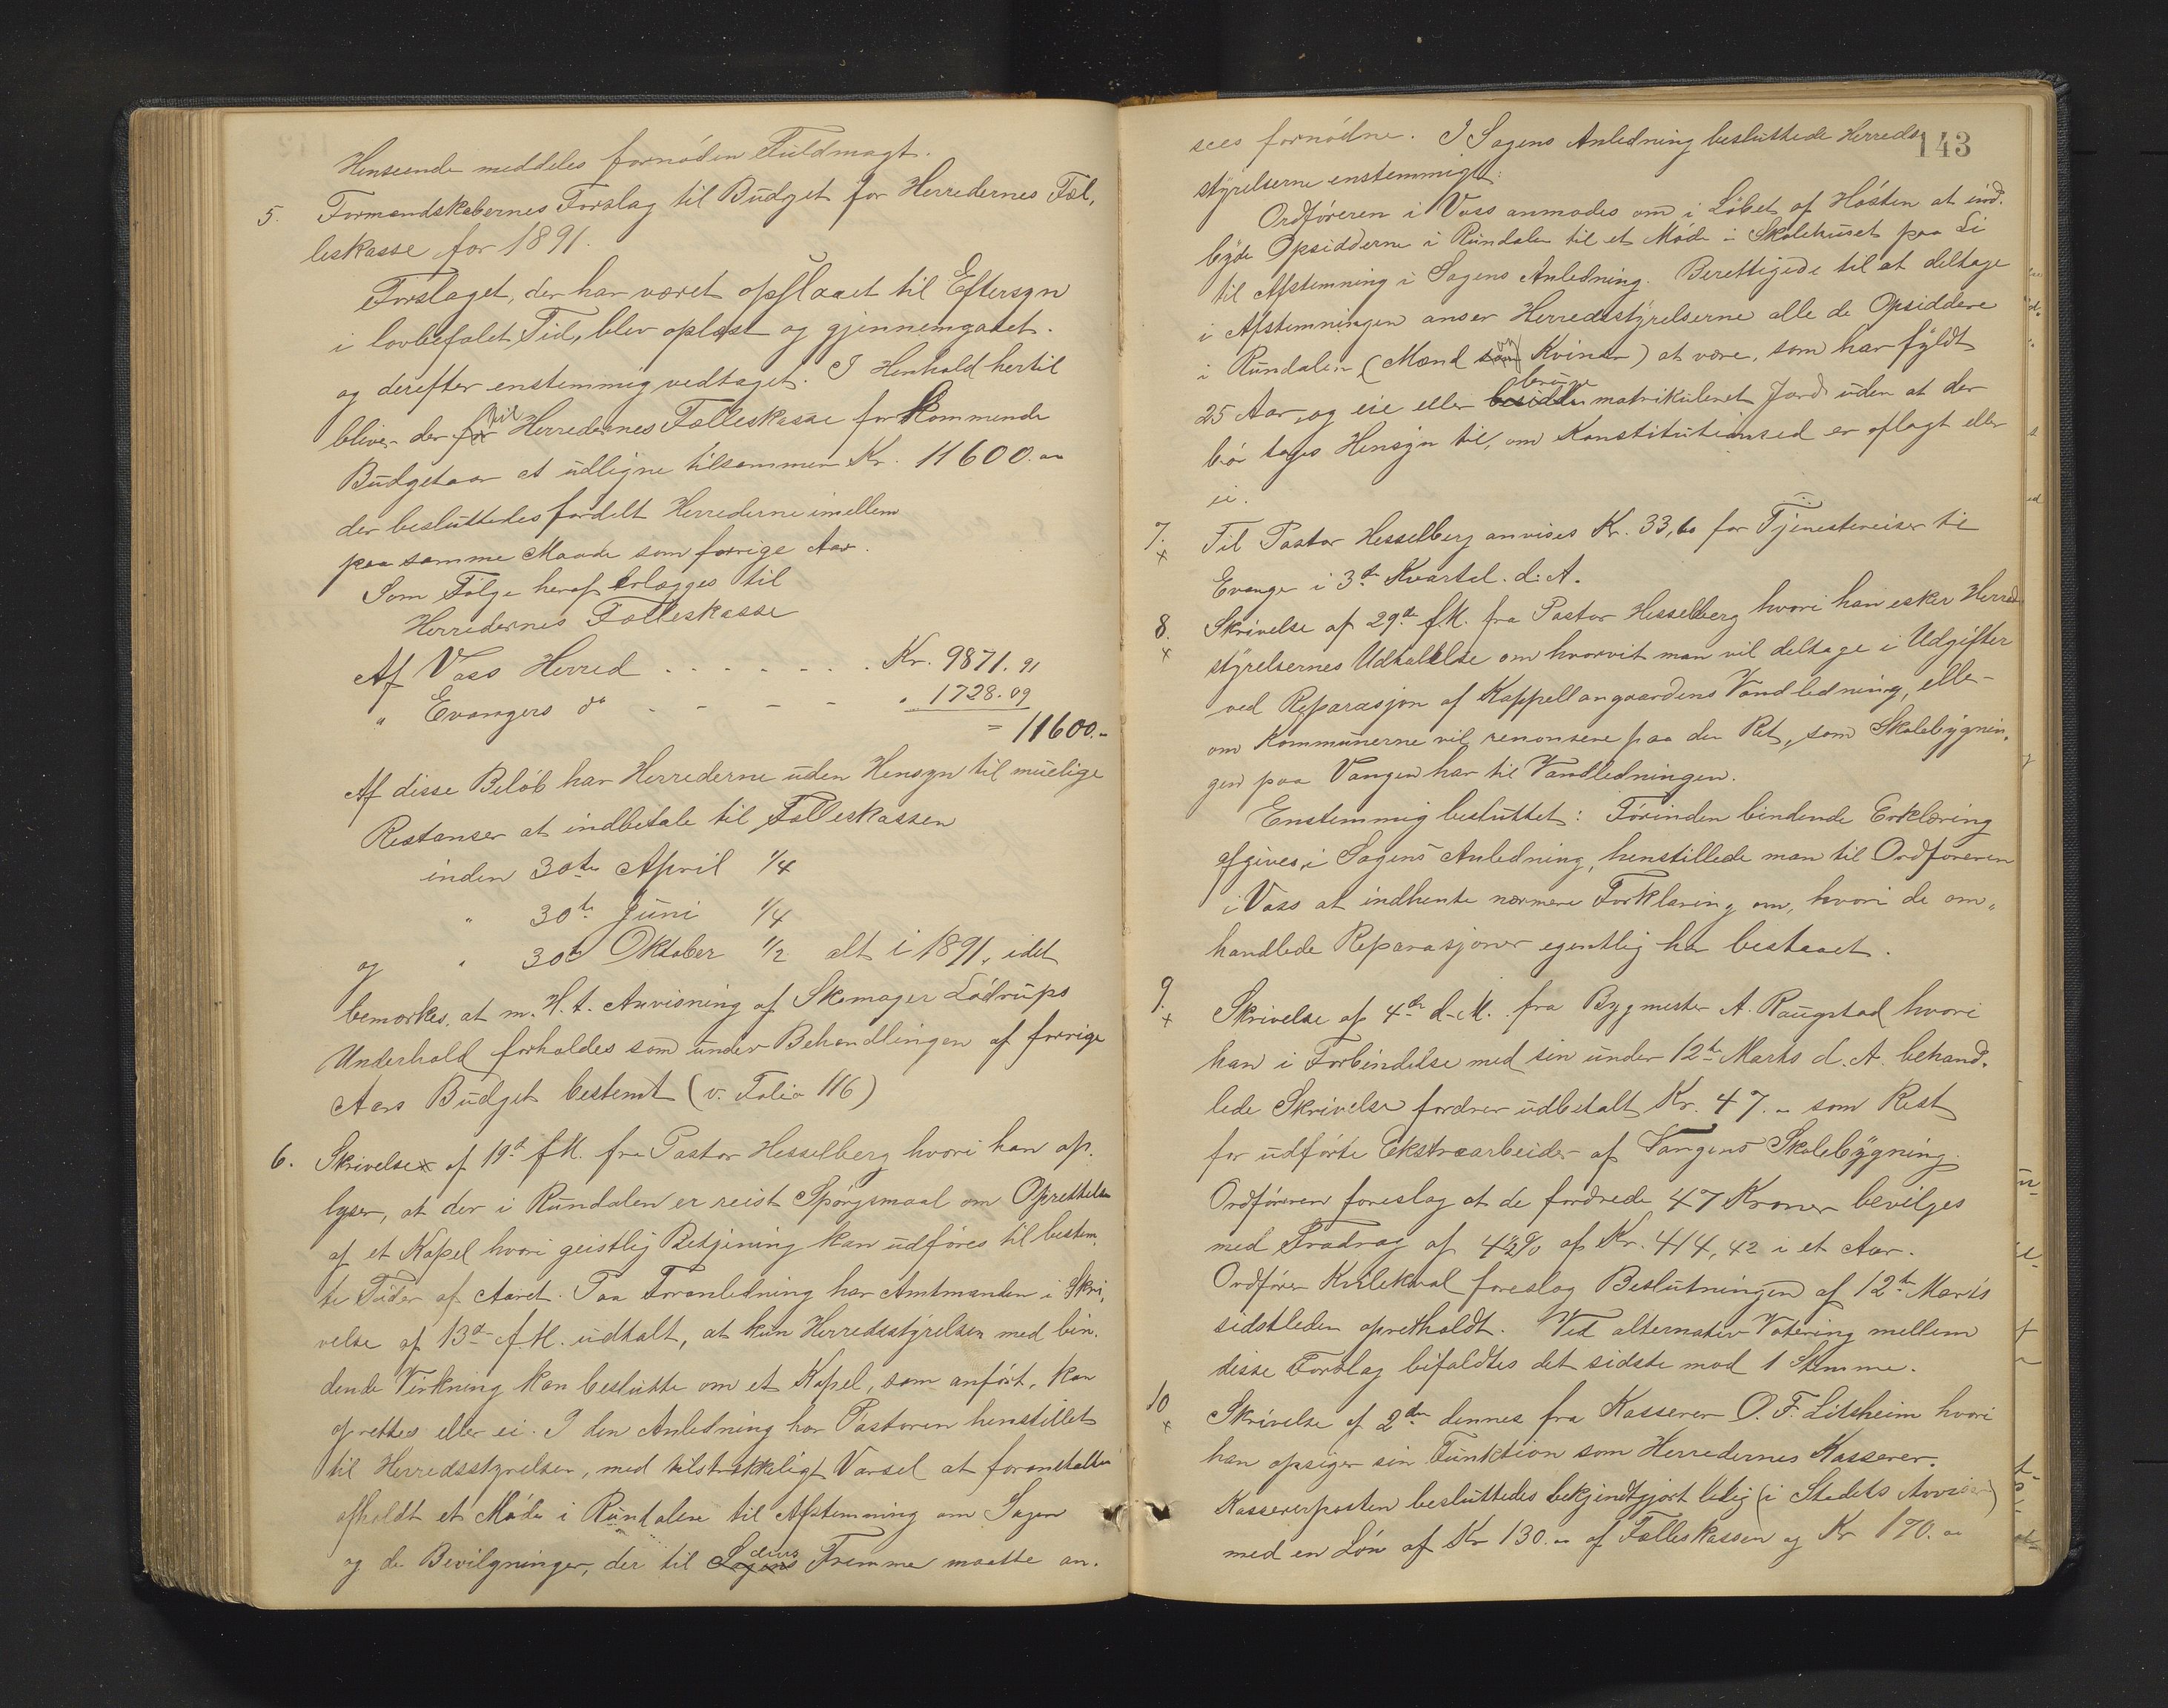 Henseende meddeles fornöden Fuldmagt.
5. Formandskabernes Forslag til Budget for Herredernes Fæl,
leskasse for 1891.
Forslaget, der har været opslaaet til Eftersyn
i lovbefalet Tid, blev oplæst og gjennemgaaet.
og derefter enstemmig vedtaget. I Henhold hertil
bliver der for til Herredernes Fælleskasse for kommende
Budgetaar at udligne tilsammen Kr. 11600.00
der besluttedes fordelt Herrederne imellem
paa samme Maade som forrige Aar.
Som Fölge heraf erlægges til
Herredernes Fælleskasse
Af Voss Herred . . . . . . . Kr. 9871.91
" Evangers do - - - - " 1728.09
= 11600.-
Af disse Belöb har Herrederne uden Hensyn til muelige
Restanser at indbetale til Fælleskassen
inden 30te April 1/4
" 30te Juni 1/4
og " 30te Oktober 1/2 alt i 1891, idet
bemærkes, at m. H. t. Anvisning af Skomager Lödrups
Underhold forholdes som under Behandlingen af forrige
Aars Budget bestemt (v. Folio 116)
6. Skrivelse af 19de f.M. fra Pastor Hesselberg hvori han op,
lyser, at der i Rundalen er reist Spörgsmaal om Oprettelse
af et Kapel hvori geistlig Betjening kan udföres til bestem,
te Tider af Aaret. Paa Foranledning har Amtmanden i Skri,
velse af 13de f.M. udtalt, at kun Herredsstyrelsen med bin,
dende Virkning kan beslutte om et Kapel, som anfört, kan
oprettes eller ei. I den Anledning har Pastoren henstillet
til Herredsstyrelsen, med tilstrækkeligt Varsel at foranstalte
afholdt et Möde i Rundalen til Afstemning om Sagen
og de Bevilgninger, der til Sagens dens Fremme maatte an,
143
sees fornödne. I Sagens Anledning besluttede Herreds,
styrelserne enstemmigt:
Ordföreren i Voss anmodes om i Löbet af Hösten at ind,
byde Opsidderne i Rundalen til et Möde i Skolehuset paa Li
til Afstemning i Sagens Anledning. Berettigede til at deltage
i Afstemningen anser Herredsstyrelserne alle de Opsiddere
i Rundalen (Mænd som og Kvinder) at være, som har fyldt
25 Aar, og eie eller besidde bruge matrikuleret Jord uden at der
bör tages Hensyn til, om Konstitutionsed er aflagt eller
ei.
7. x Til Pastor Hesselberg anvises Kr. 33,60 for Tjenestereiser til
Evanger i 3de Kvartal d. A.
8. x Skrivelse af 29de f.M. fra Pastor Hesselberg hvori han esker Herreds
styrelsernes Udtalelse om hvorvit man vil deltage i Udgifter
ved Reparasjon af Kappellangaardens Vandledning, eller
om Kommunerne vil renonsere paa den Ret, som Skolebygnin,
gen paa Vangen har til Vandledningen.
Enstemmig besluttet: Förinden bindende Erklæring
afgives i Sagens Anledning, henstillede man til Ordföreren
i Voss at indhente nærmere Forklaring om, hvori de om,
handlede Reparasjoner egentlig har bestaaet.
9. x Skrivelse af 4de d.M. fra Bygmester A. Raugstad hvori
han i Forbindelse med sin under 12te Marts d. A. behand,
lede Skrivelse fordrer udbetalt Kr. 47.- som Rest
for udförte Ekstraarbeider af Vangens Skolebygning.
Ordföreren foreslog at de fordrede 47 Kroner bevilges
med Fradrag af 4 1/2 % af Kr. 414,42 i et Aar.
Ordförer Kvilekval foreslog Beslutningen af 12te Marts
sidstleden opretholdt. Ved alternativ Votering mellem
disse Forslag bifaldtes det sidste mod 1 Stemme.
10 x Skrivelse af 2den dennes fra Kasserer O. F. Litsheim hvori
han opsiger sin Funktion som Herredernes Kasserer.
Kassererposten besluttedes bekjendtgjort ledig (i Stedets Aviser)
med en Lön af Kr 130.00 af Fælleskassen og Kr 170.00